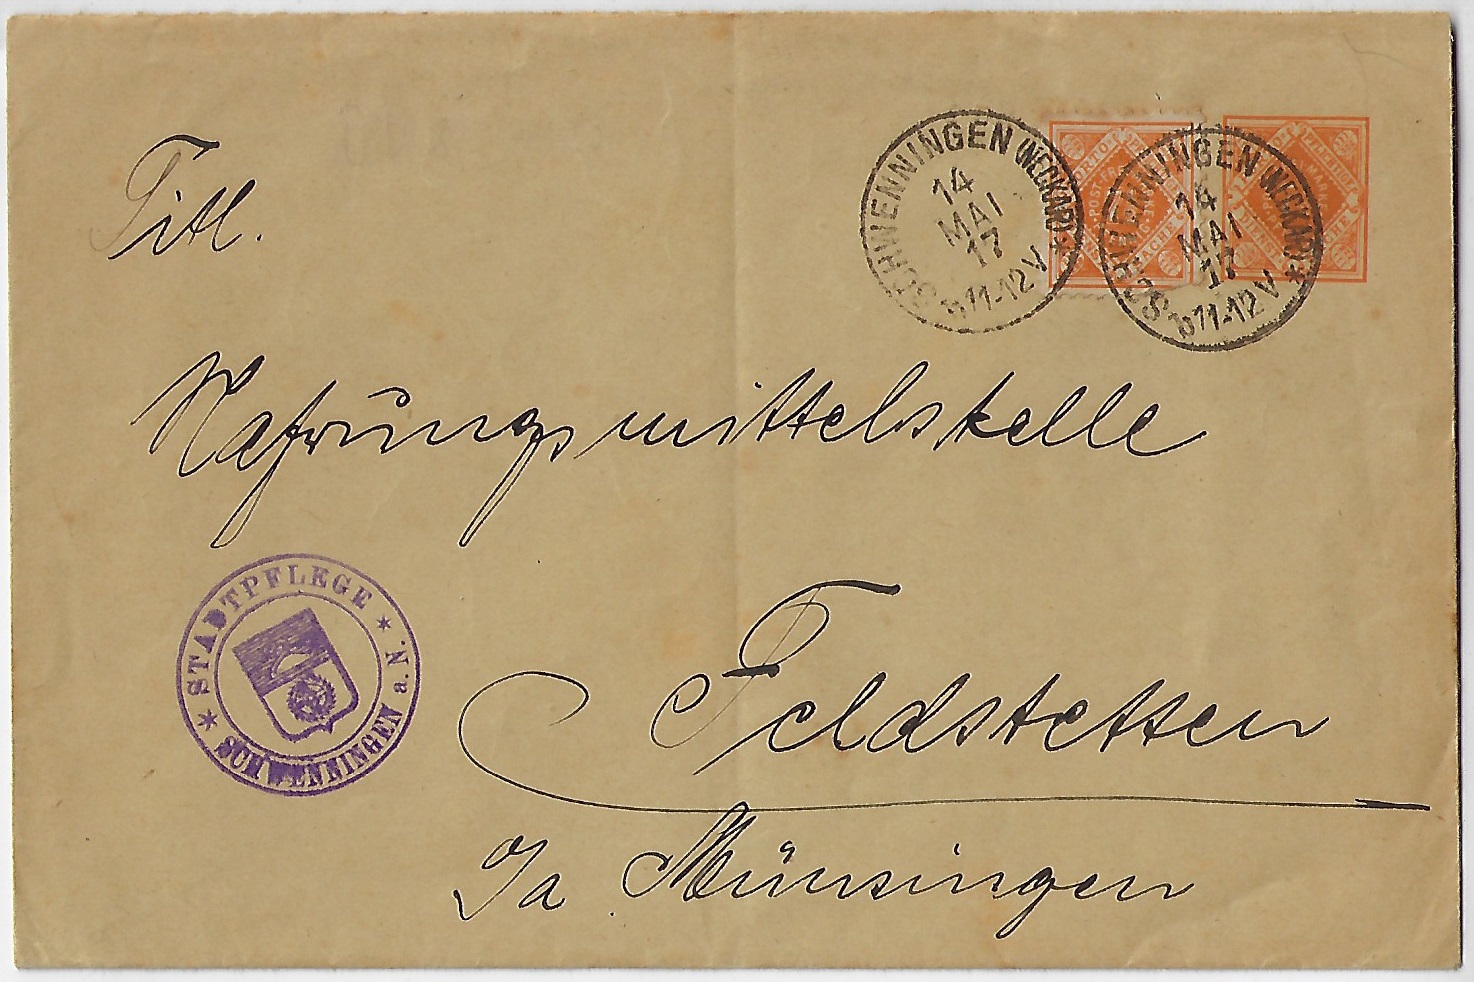 SCHWENNINGEN (NECKAR)
14
MAI
17
11-12 V
SCHWENNINGEN (NECKAR)
14
MAI
17
11-12 V
Titl.
Nahrungsmittelstelle
Feldstetten
Münsingen
STADTPFLEGE
SCHWENNINGEN a. N.